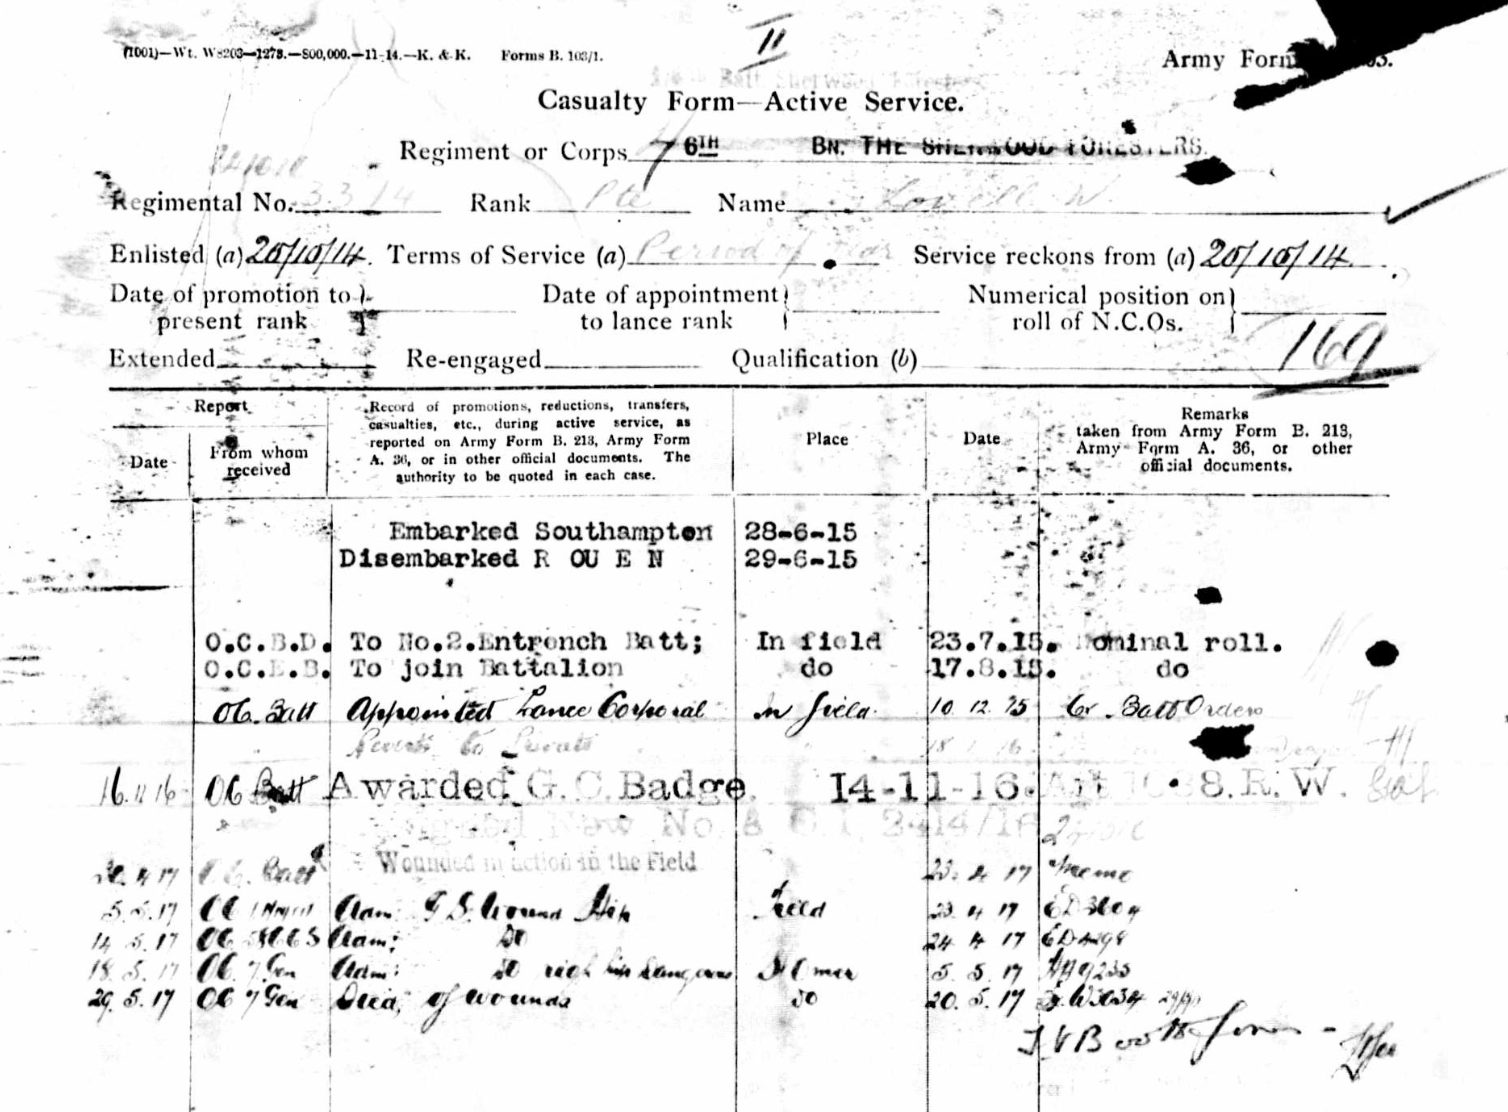 (1001)—Wt. W8203—1278.—800,000.—11-14.—K. & K. Forms B. 103/1.
II
Army Form
Casualty Form—Active Service.
Regiment or Corps 6TH BN. THE SHERWOOD FORESTERS.
Regimental No. 3314 Rank Pte Name Lovell W.
Enlisted (a) 20/10/14. Terms of Service (a) Period of War Service reckons from (a) 20/10/14.
Date of promotion to } Date of appointment } Numerical position on }
present rank to lance rank roll of N.C.Os.
169
Extended Re-engaged Qualification (b)
Report
Date
From whom received
Record of promotions, reductions, transfers,
casualties, etc., during active service, as
reported on Army Form B. 213, Army Form
A. 36, or in other official documents. The
authority to be quoted in each case.
Place
Date
Remarks
taken from Army Form B. 213,
Army Form A. 36, or other
official documents.
Embarked Southampton 28-6-15
Disembarked R OU E N 29-6-15
O.C.B.D. To No.2.Entrench Batt; In field 23.7.15. Nominal roll.
O.C.E.B. To join Battalion do 17.8.15. do
OC. Batt Appointed Lance Corporal In field 10 12 15 Batt Orders
Reverts to Private 18 1 16
16 11 16 OC Batt Awarded G.C.Badge. 14-11-16. Art 1088.R.W.
New No.
4 17 OC. Batt Wounded in action in the Field 23. 4 17 Memo
5.5.17 OC Adm: G.S. Wound Hip Field 23 4 17
14 5.17 OC CCS Adm: Do 24 4 17
18.5.17 OC 7 Gen Adm: Do St Omer 5 5 17
29.5.17 OC 7 Gen Died of wounds Do 20.5.17